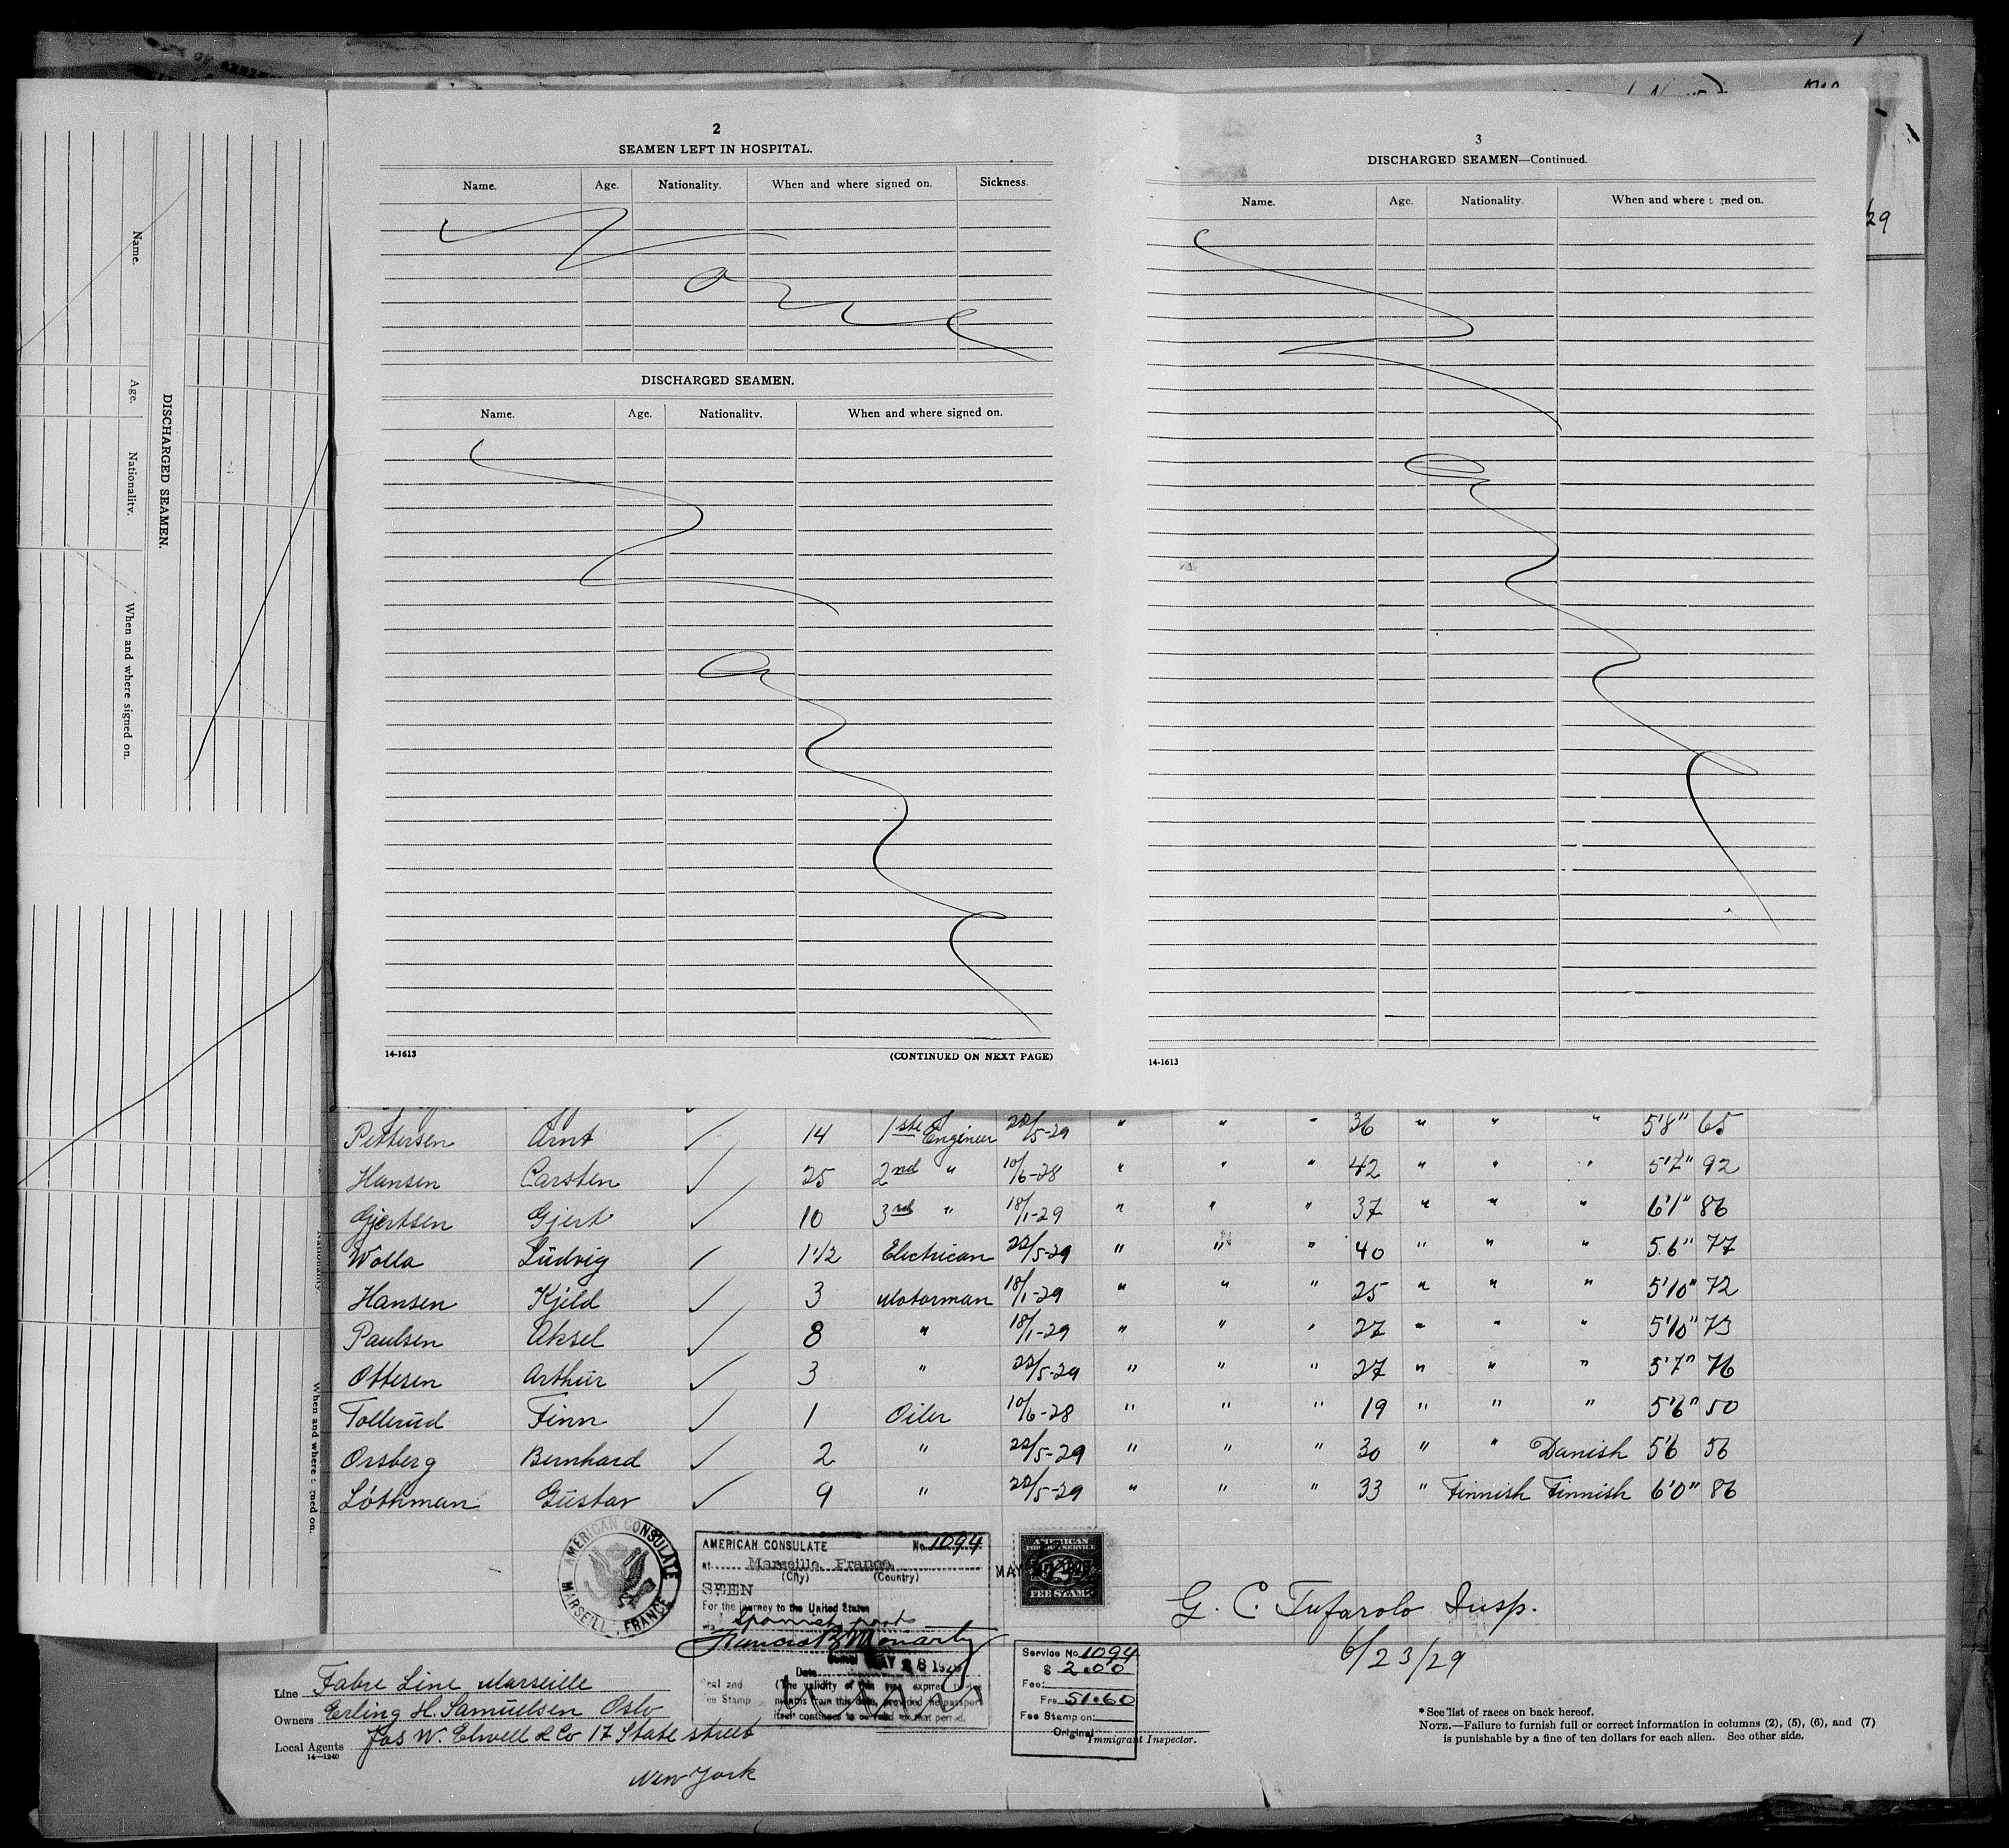 2
SEAMEN LEFT IN HOSPITAL.
Name. Age. Nationality. When and where signed on. Sickness.
None
DISCHARGED SEAMEN.
Name. Age. Nationality. When and where signed on.
14-1613 (CONTINUED ON NEXT PAGE)
3
DISCHARGED SEAMEN—Continued.
Name. Age. Nationality. When and where signed on.
14-1613
29
DISCHARGED SEAMEN.
Name. Age. Nationality. When and where signed on.
Nationality.
When and where signed on.
Pettersen Arnt ✓ 14 1ste Engineer 22/5-29 " " " 36 " " " 5'8" 65
Hansen Carsten ✓ 25 2nd " 10/6-28 " " " 42 " " " 5'7" 92
Gjertsen Gjert ✓ 10 3rd " 18/1-29 " " " 37 " " " 6'1" 86
Wolla Ludvig ✓ 1 1/2 Electrican 22/5-29 " " " 40 " " " 5.6" 77
Hansen Kjeld ✓ 3 Motorman 18/1-29 " " " 25 " " " 5'10" 72
Paulsen Aksel ✓ 8 " 18/1-29 " " " 27 " " " 5'10" 73
Ottesen Arthur ✓ 3 " 22/5-29 " " " 27 " " " 5'7" 76
Tollerud Finn ✓ 1 Oiler 10/6-28 " " " 19 " " " 5'6" 50
Orsberg Bernhard ✓ 2 " 22/5-29 " " " 30 " " Danish 5'6 56
Löthman Gustav ✓ 9 " 22/5-29 " " " 33 " Finnish Finnish 6'0" 86
AMERICAN CONSULATE
MARSEILLE, FRANCE
AMERICAN CONSULATE No. 1094
at Marseille, France
(City) (Country)
SEEN
For the journey to the United States
Spanish ports
Francis B Moriarty
Date MAY 28 1929
Seal and Fee Stamp
(The validity of this visa expires
months from this date, provided the passport
itself continues to be valid for that period.
AMERICAN
FOREIGN SERVICE
FEE STAMP
MAY
Service No. 1094
$ 2.00
Fee:
Frs. 51.60
Fee Stamp on:
Original
G. C. Tufarolo Insp.
6/23/29
Immigrant Inspector.
Line Fabre Line Marseille
Owners Erling H. Samuelsen Oslo
Local Agents Jas W. Elwell & Co 17 State street
14—1240
New York
* See list of races on back hereof.
NOTE.—Failure to furnish full or correct information in columns (2), (5), (6), and (7)
is punishable by a fine of ten dollars for each alien. See other side.